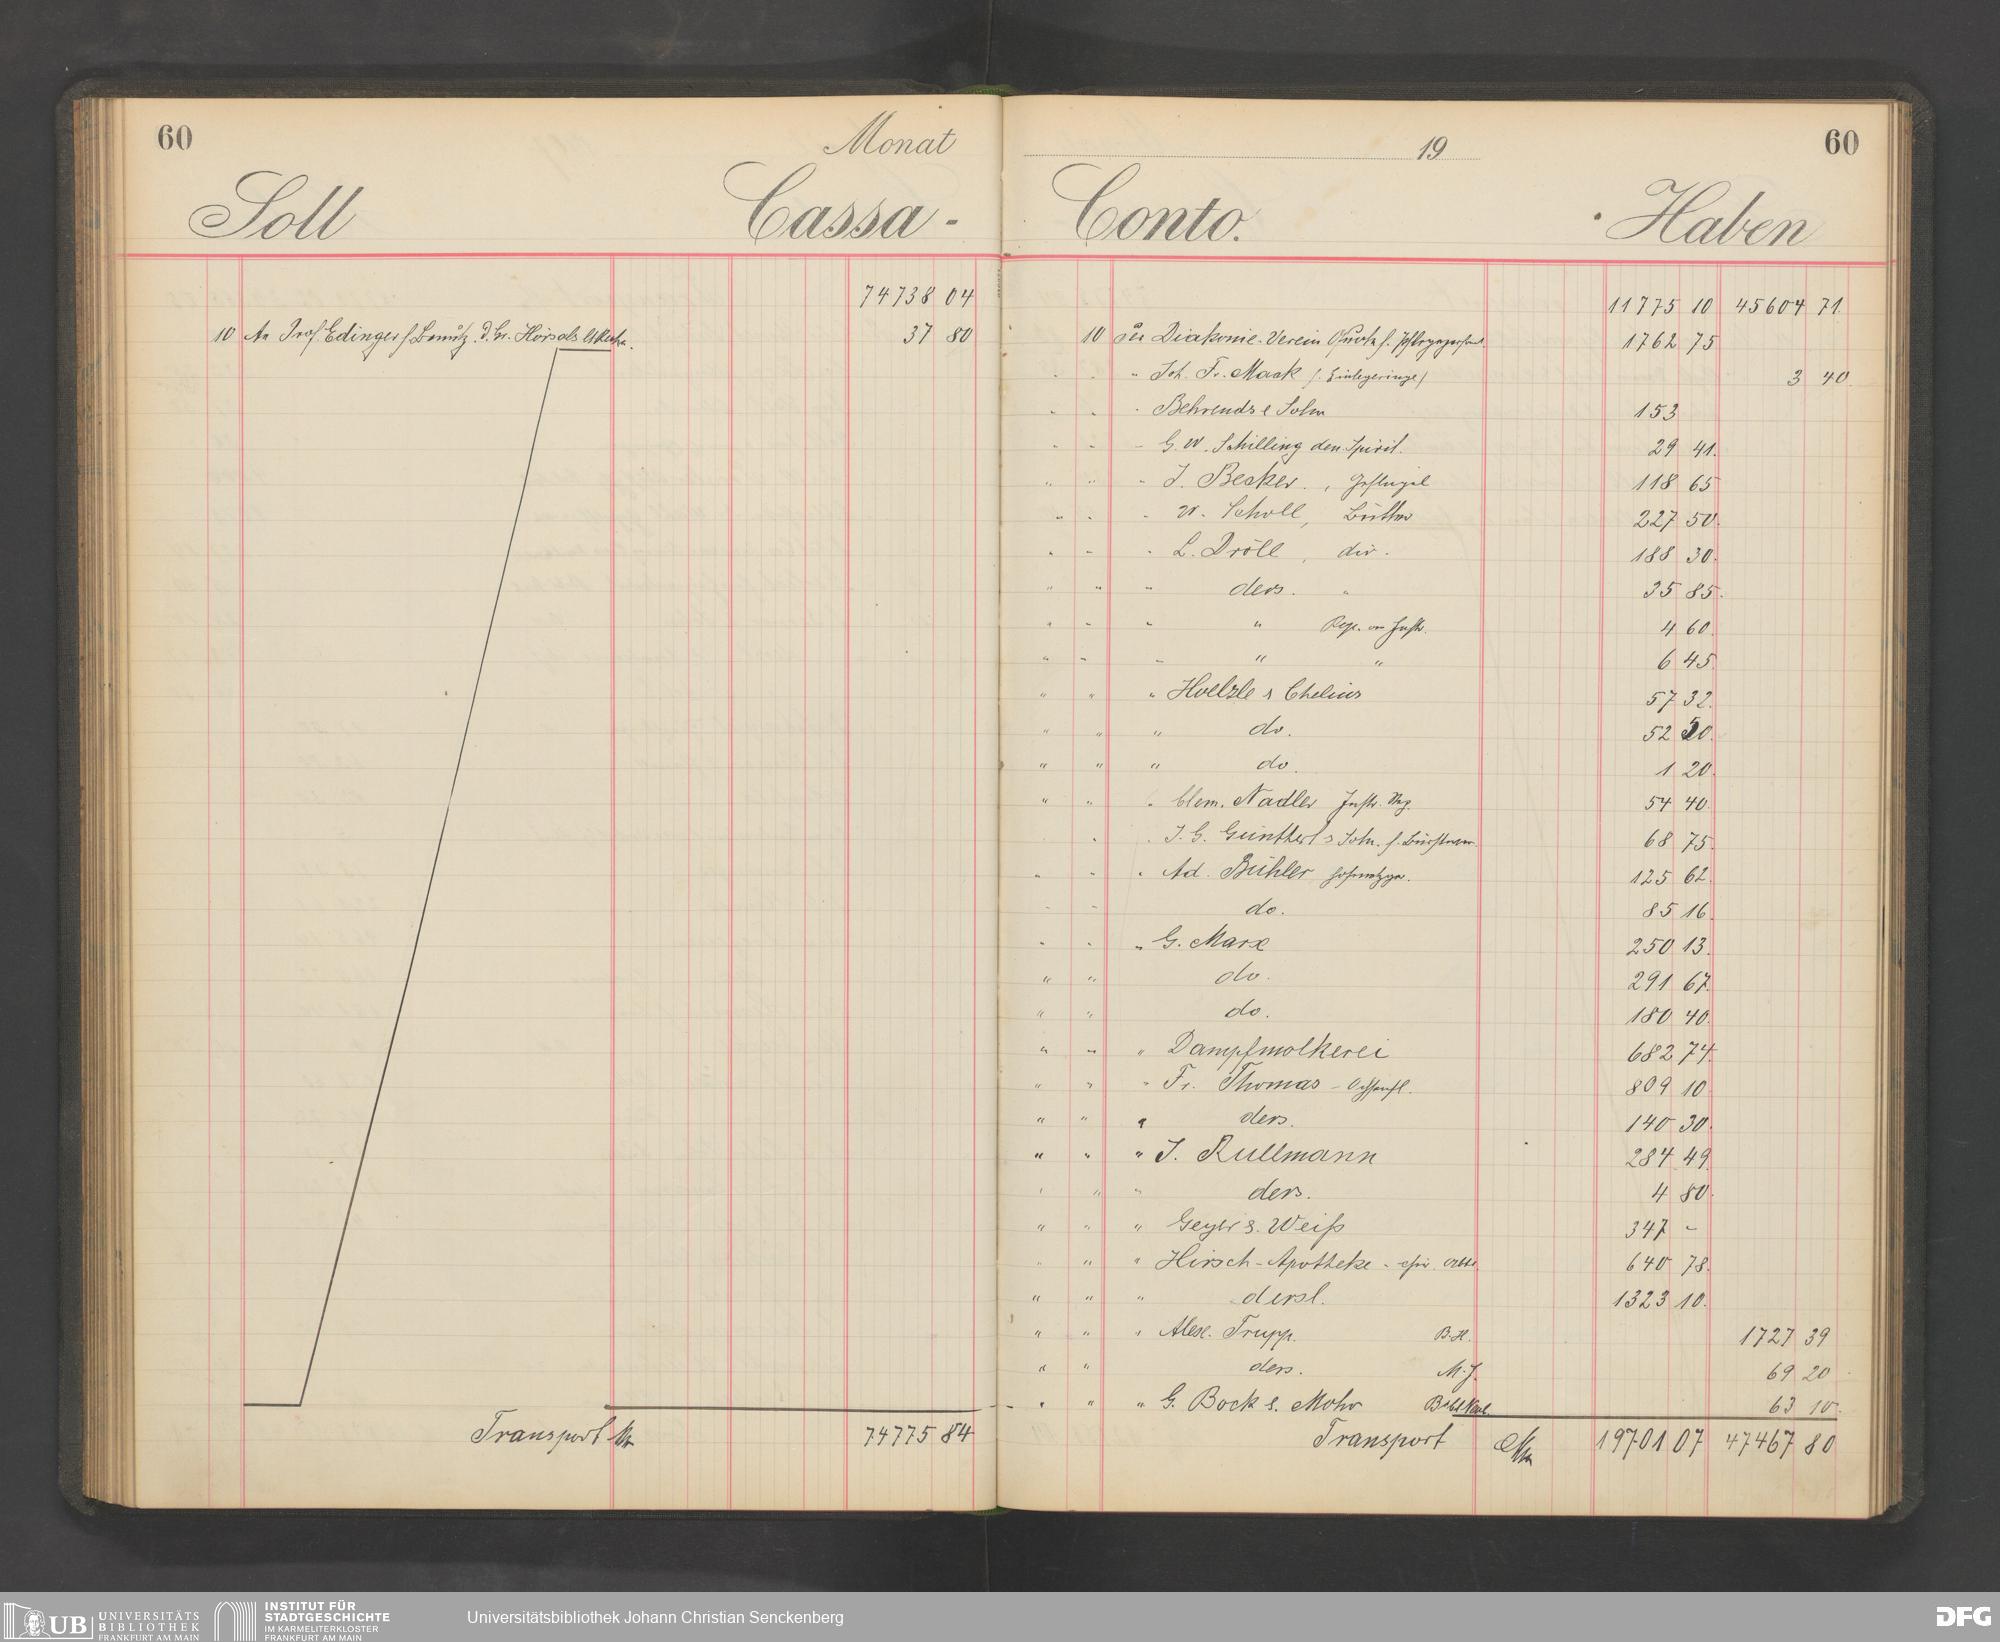 60
Monat
Soll
Cassa-
74738 04
10 An Prof. Edinger f. Benutz. d. Gr. Hörsals
37 80
Transport M
74775 84
19
60
Conto.
Haben
11775 10 45604 71
10 Per Diakonie-Verein
1762 75
" Joh. Fr. Maak (. Einlegeringe)
3 40
Behrends & Sohn
153
G. W. Schilling den. Spirit.
29 41.
" J. Becker. , Geflügel
118 65
" W. Scholl, Butter
227 50.
" L. Dröll, div.
188 30.
" ders. "
35 85.
" " Rep. an Instr.
4 60.
" " "
6 45
" Hoelzle & Chelius
57 32.
" do.
52 50.
" do.
1 20.
" Clem. Nadler Instr. Rep.
54 40.
J. G. Günther's Sohn. f.
68 75.
Ad. Bühler
125 62.
do.
85 16.
" G. Marx
250 13.
do.
291 67.
do.
180 40.
" Dampfmolkerei
682 74.
" Fr. Thomas - Ochsenfl.
809 10.
" ders.
140 30.
" J. Rullmann
284 49.
" ders.
4 80.
" Geyer & Weiß
347 -
" Hirsch-Apotheke -
640 78.
" dersl.
1323 10.
" Alex. Trupp. B.H.
1727 39
ders. M.J.
69 20
" G. Bock & Mohr
63 10.
Transport M
19701 07 47467 80
UB UNIVERSITÄTS
BIBLIOTHEK
FRANKFURT AM MAIN
INSTITUT FÜR
STADTGESCHICHTE
IM KARMELITERKLOSTER
FRANKFURT AM MAIN
Universitätsbibliothek Johann Christian Senckenberg
DFG